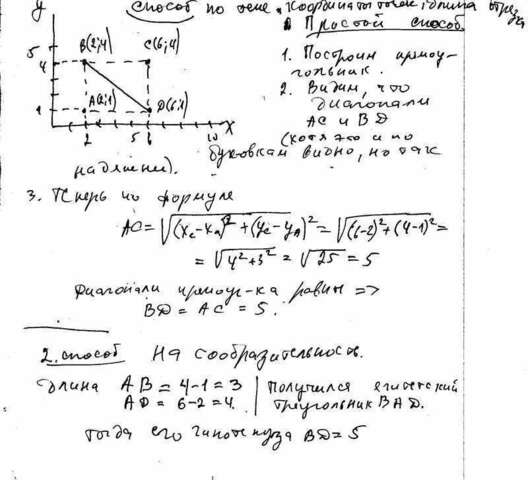 способ по теме „Координаты точек, длина отрезка
Простой способ.
y
B(2;4) C(6;4)
5
4
A(2;1) D(6;1)
1
2 5 6 10 X
1. Построим прямоу-
гольник.
2. Видим, что
диагонали
AC и BD
(хотя это и по
буковкам видно, но так
надяжней).
3. Теперь по формуле
AC=√(xc-xa)²+(yc-yA)²=√(6-2)²+(4-1)²=
=√4²+3²=√25=5
Диагонали прямоуг-ка равны =>
BD=AC=5.
2. способ На сообразительность.
Длина AB=4-1=3 | Получился египетский
AD=6-2=4. | треугольник BAD.
тогда его гипотенуза BD=5